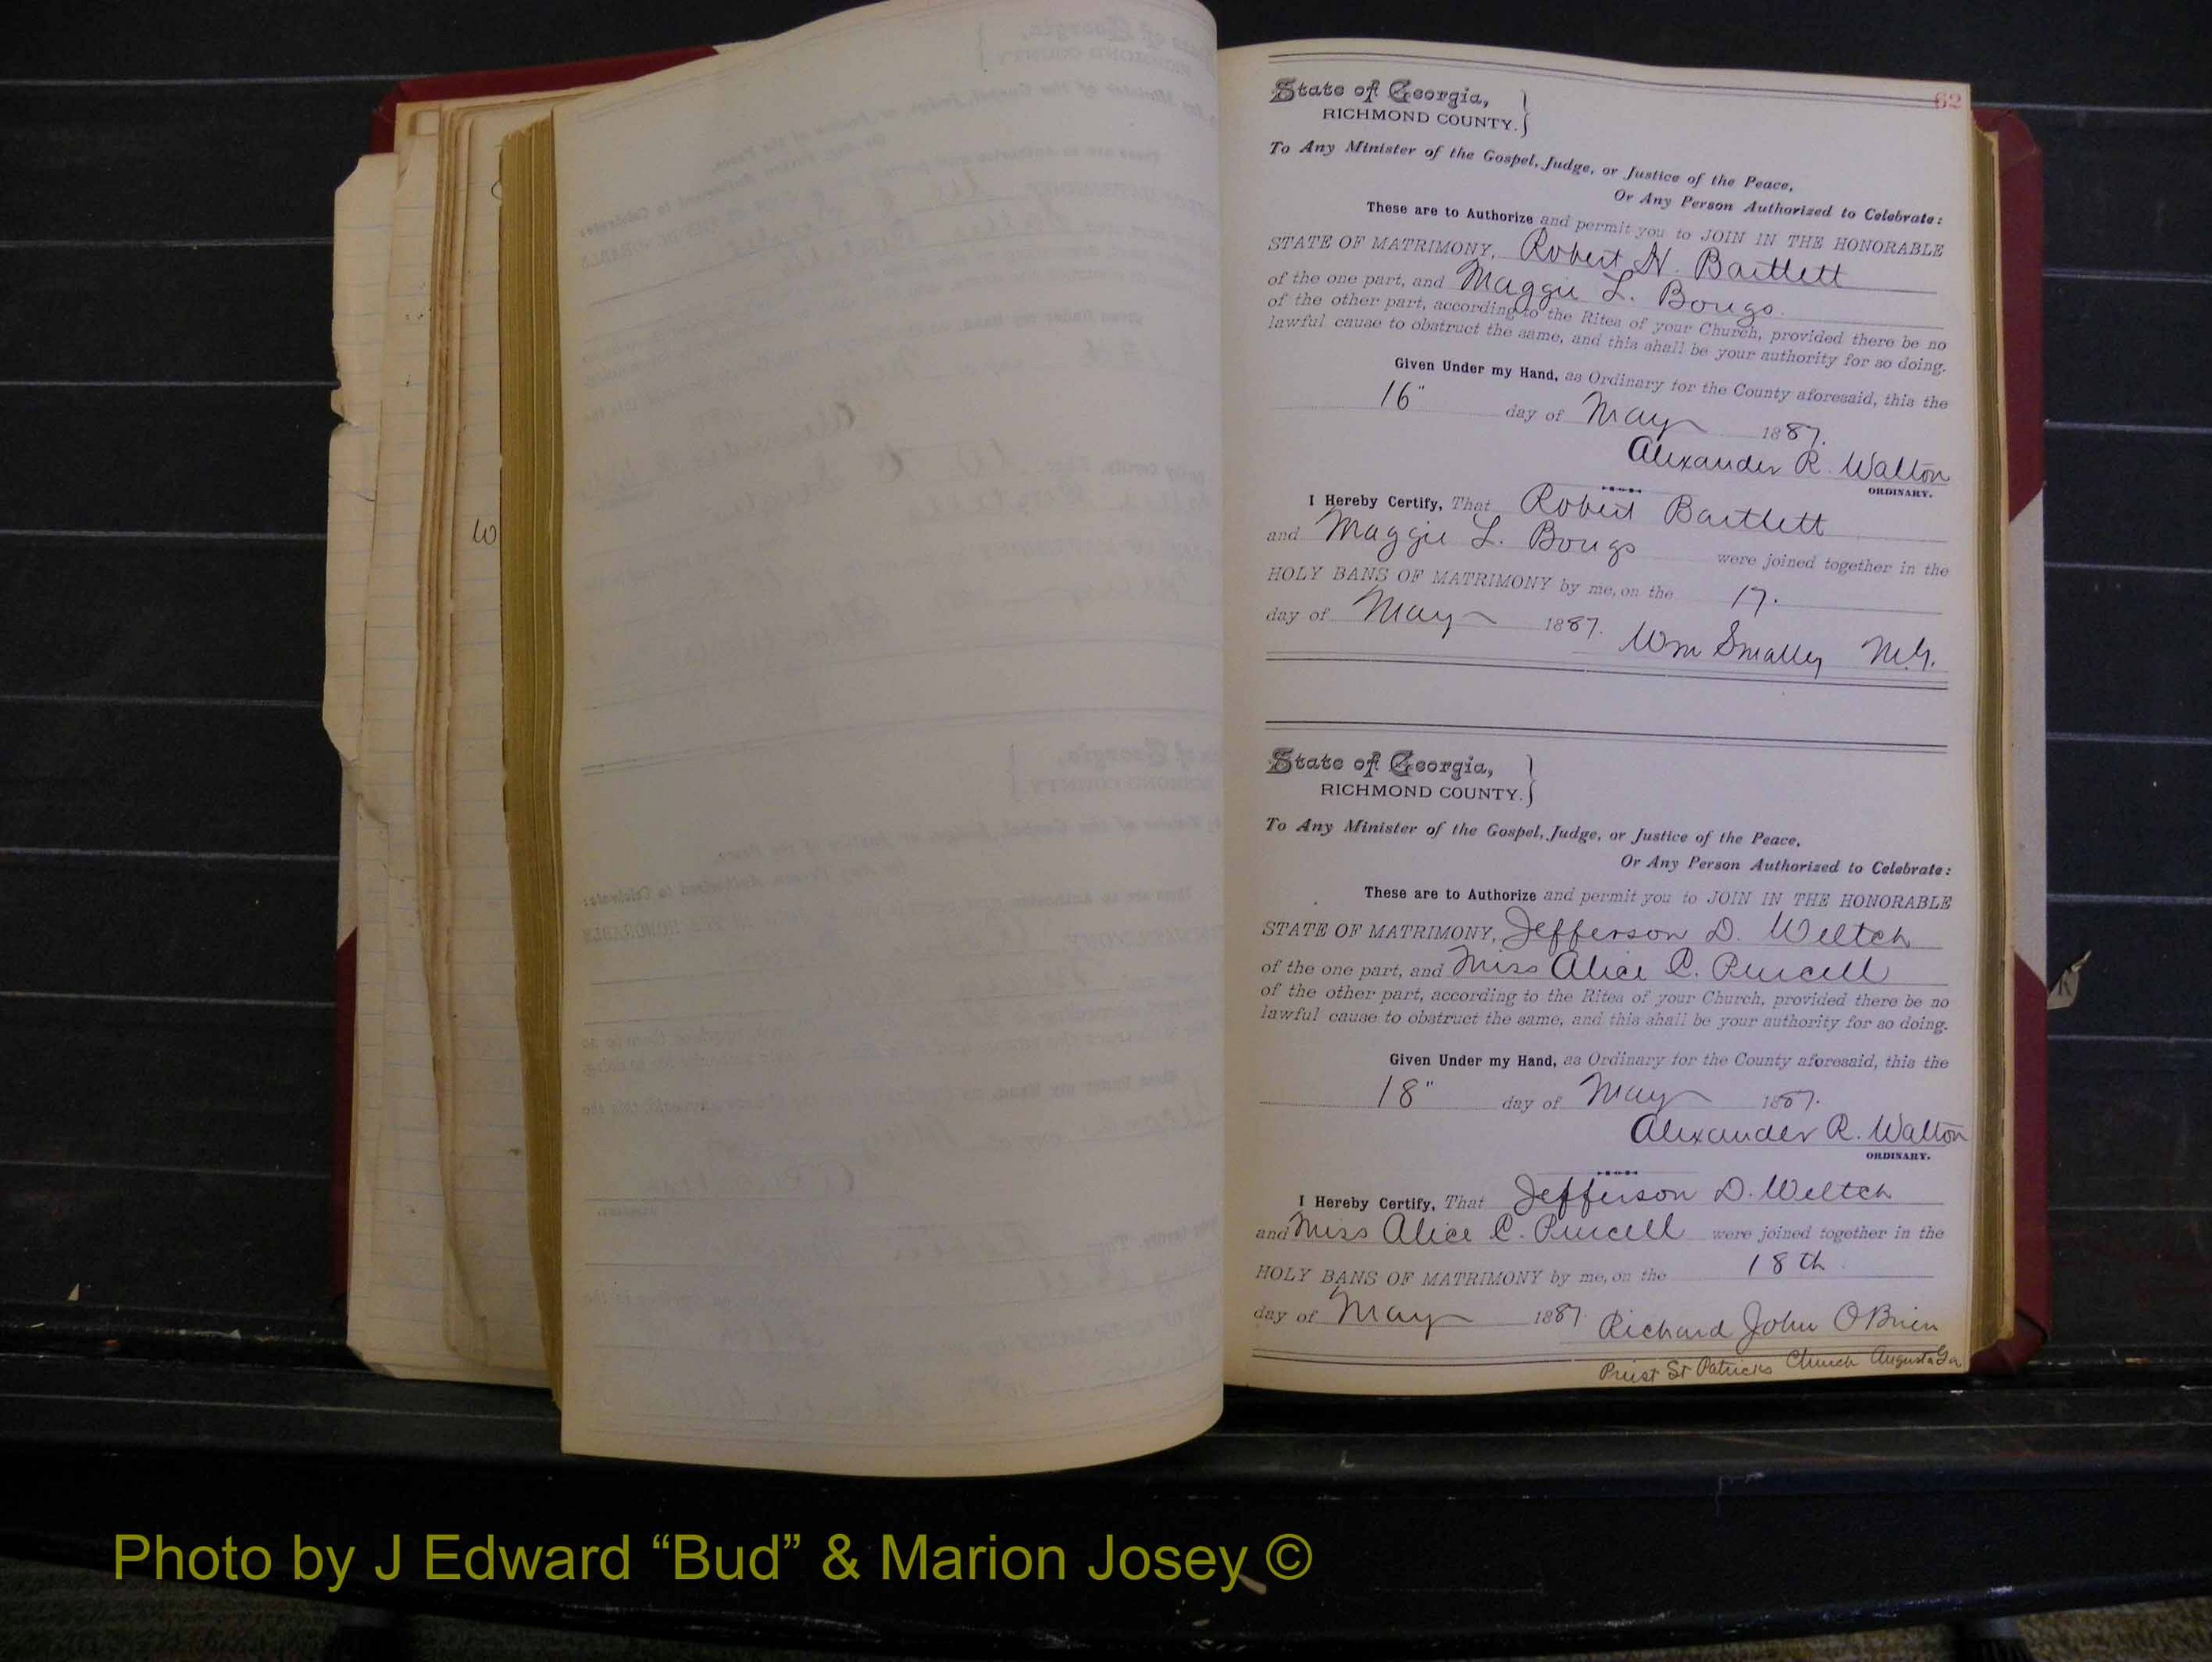 62
State of Georgia,
RICHMOND COUNTY.
To Any Minister of the Gospel, Judge, or Justice of the Peace,
Or Any Person Authorized to Celebrate:
These are to Authorize and permit you to JOIN IN THE HONORABLE
STATE OF MATRIMONY, Robert N. Bartlett
of the one part, and Maggie L. Bougs
of the other part, according to the Rites of your Church, provided there be no
lawful cause to obstruct the same, and this shall be your authority for so doing.
Given Under my Hand, as Ordinary for the County aforesaid, this the
16" day of May 1887.
Alexander R. Walton
ORDINARY.
I Hereby Certify, That Robert Bartlett
and Maggie L. Bougs were joined together in the
HOLY BANS OF MATRIMONY by me, on the 17.
day of May 1887. Wm Smalley M.G.
State of Georgia,
RICHMOND COUNTY.
To Any Minister of the Gospel, Judge, or Justice of the Peace,
Or Any Person Authorized to Celebrate:
These are to Authorize and permit you to JOIN IN THE HONORABLE
STATE OF MATRIMONY, Jefferson D. Weltch
of the one part, and Miss Alice C. Purcell
of the other part, according to the Rites of your Church, provided there be no
lawful cause to obstruct the same, and this shall be your authority for so doing.
Given Under my Hand, as Ordinary for the County aforesaid, this the
18" day of May 1887.
Alexander R. Walton
ORDINARY.
I Hereby Certify, That Jefferson D. Weltch
and Miss Alice C. Purcell were joined together in the
HOLY BANS OF MATRIMONY by me, on the 18th
day of May 1887. Richard John OBrien
Priest St Patricks Church Augusta Ga
Photo by J Edward “Bud” & Marion Josey ©